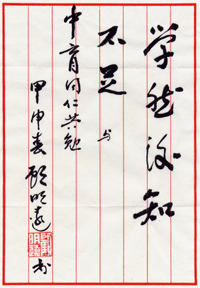 学然後知
不足 与
中育同仁共勉
甲申春 顾明远 书